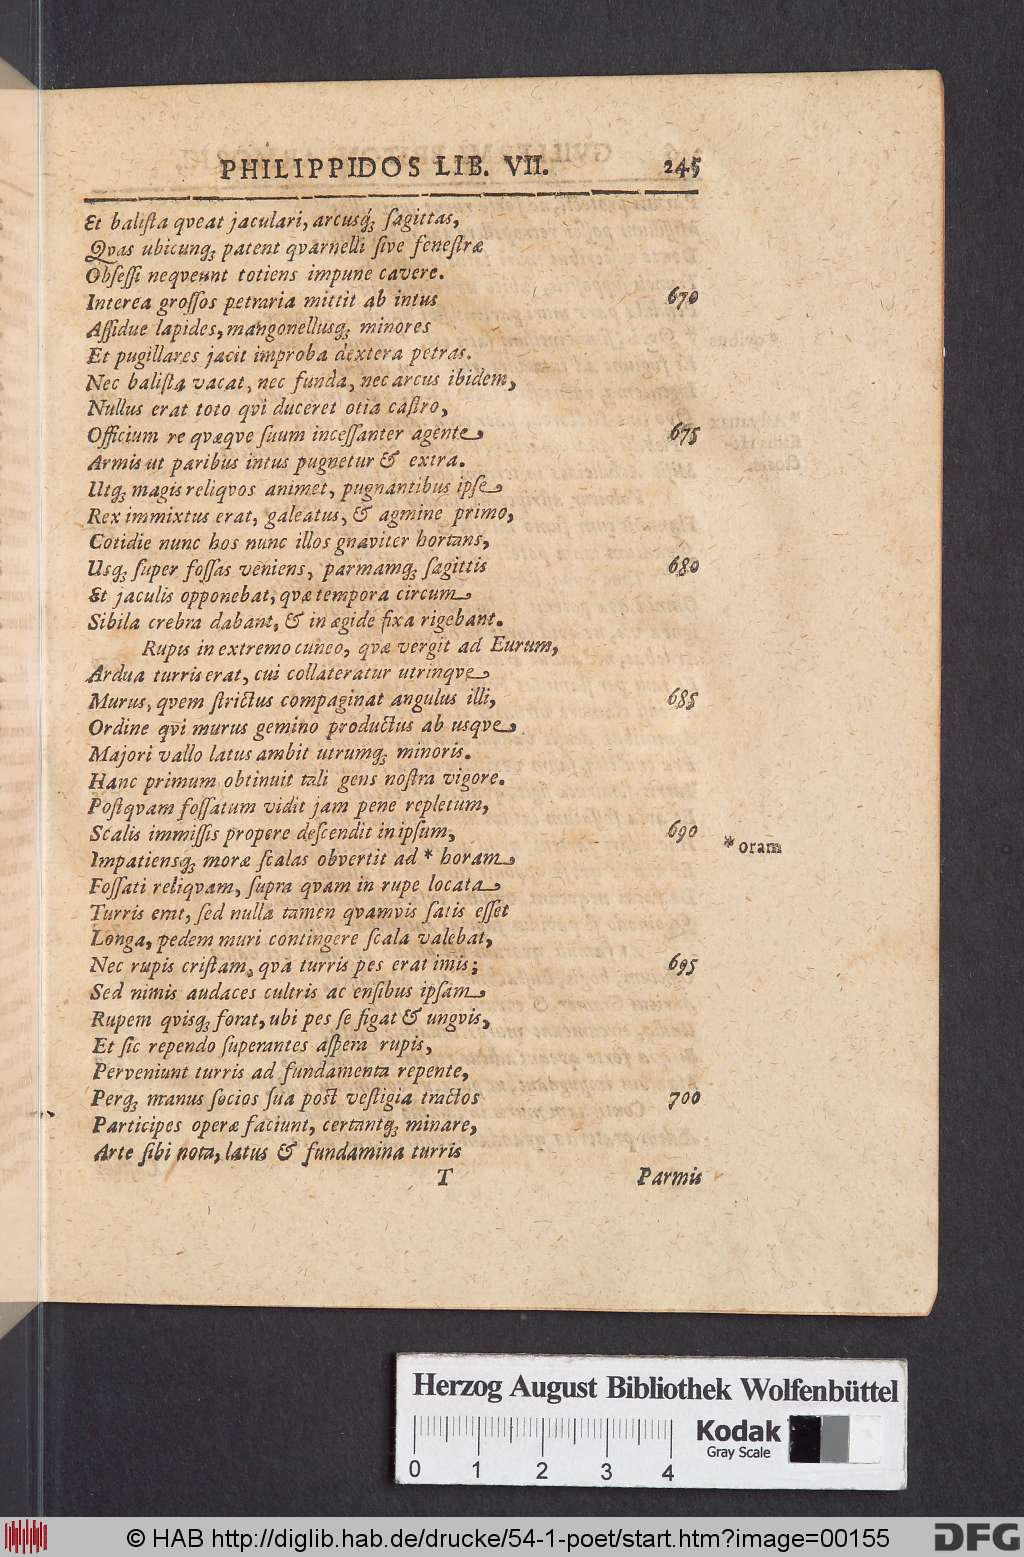 PHILIPPIDOS LIB. VII. 245
Et balista qveat jaculari, arcusq́; sagittas,
Qvas ubicunq; patent qvarnelli sive fenestræ
Obsessi neqveunt totiens impune cavere.
Interea grossos petraria mittit ab intus 670
Assidue lapides, mangonellusq; minores
Et pugillares jacit improba dextera petras.
Nec balista vacat, nec funda, nec arcus ibidem,
Nullus erat toto qvi duceret otia castro,
Officium re qvæqve suum incessanter agente 675
Armis ut paribus intus pugnetur & extra.
Utq; magis reliqvos animet, pugnantibus ipse
Rex immixtus erat, galeatus, & agmine primo,
Cotidie nunc hos nunc illos gnaviter hortans,
Usq; super fossas veniens, parmamq; sagittis 680
Et jaculis opponebat, qvæ tempora circum
Sibila crebra dabant, & in ægide fixa rigebant.
Rupis in extremo cuneo, qvæ vergit ad Eurum,
Ardua turris erat, cui collateratur utrinqve
Murus, qvem strictus compaginat angulus illi, 685
Ordine qvi murus gemino productus ab usqve
Majori vallo latus ambit utrumq; minoris.
Hanc primum obtinuit tali gens nostra vigore.
Postqvam fossatum vidit jam pene repletum,
Scalis immissis propere descendit in ipsum, 690
Impatiensq; moræ scalas obvertit ad * horam
* oram
Fossati reliqvam, supra qvam in rupe locata
Turris emt, sed nulla tamen qvamvis satis esset
Longa, pedem muri contingere scala valebat,
Nec rupis cristam, qva turris pes erat imis; 695
Sed nimis audaces cultris ac ensibus ipsam
Rupem qvisq; forat, ubi pes se figat & ungvis,
Et sic rependo superantes aspera rupis,
Perveniunt turris ad fundamenta repente,
Perq; manus socios sua post vestigia tractos 700
Participes operæ faciunt, certantq; minare,
Arte sibi nota, latus & fundamina turris
T Parmis
Herzog August Bibliothek Wolfenbüttel
0 1 2 3 4
Kodak
Gray Scale
© HAB http://diglib.hab.de/drucke/54-1-poet/start.htm?image=00155
DFG